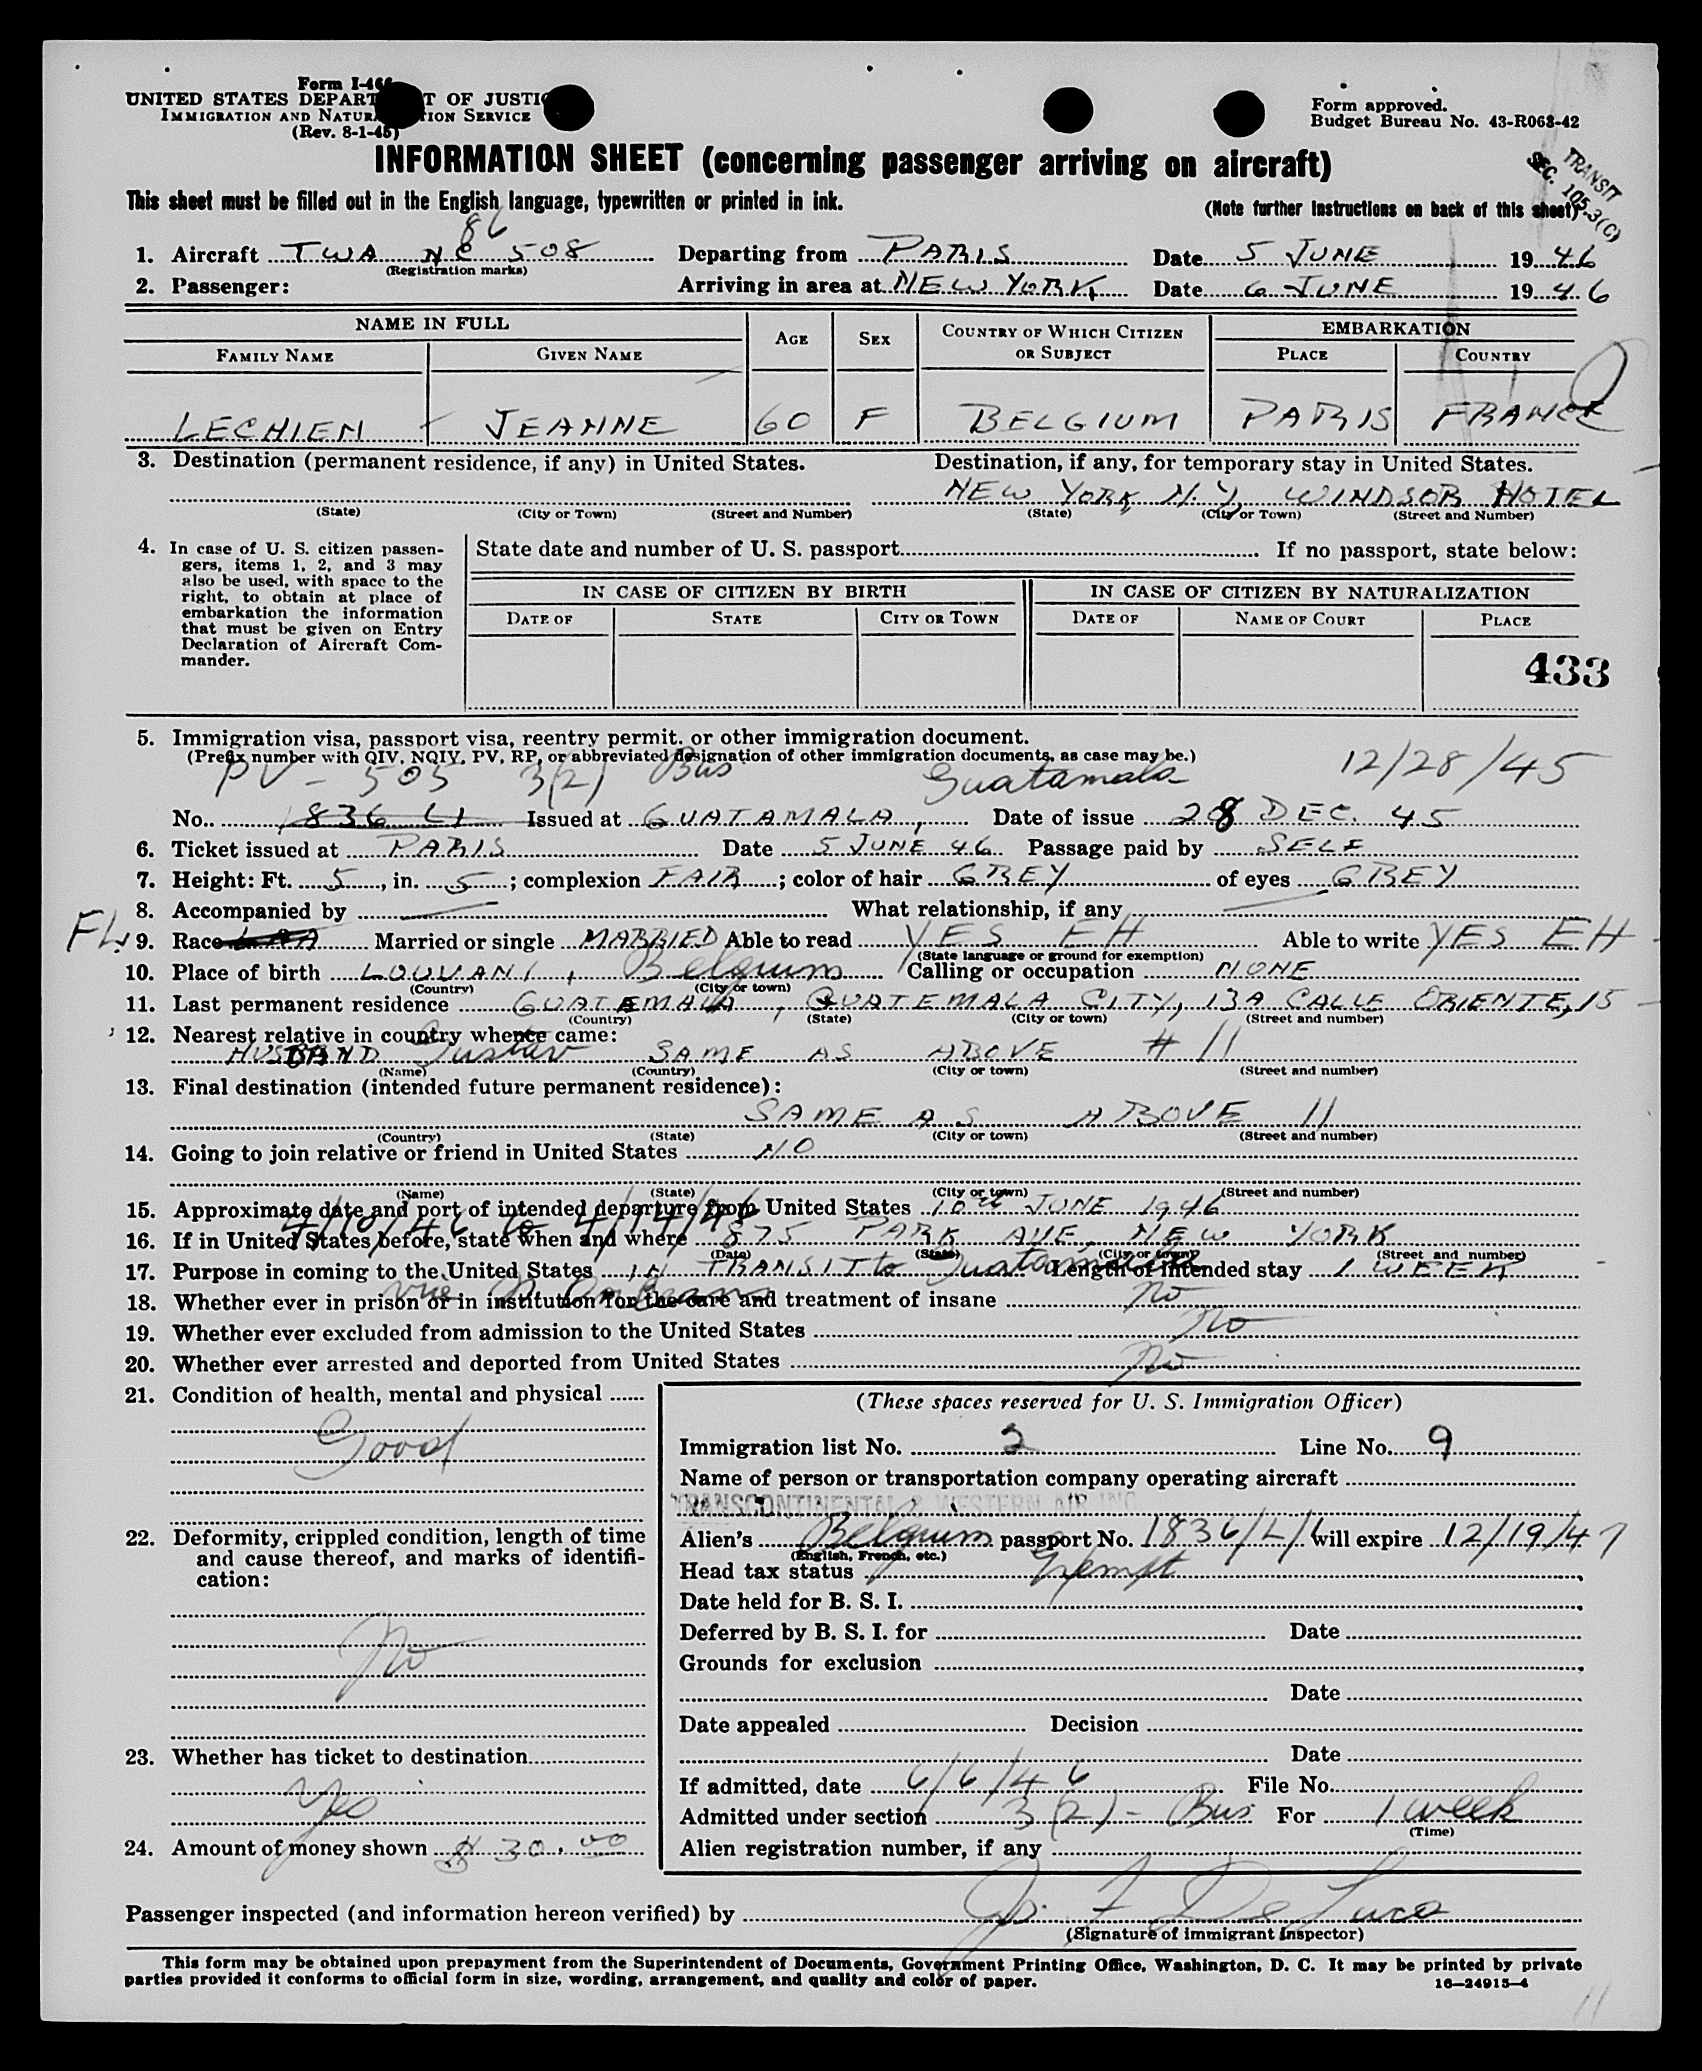 Form I-466
UNITED STATES DEPARTMENT OF JUSTICE
IMMIGRATION AND NATURALIZATION SERVICE
(Rev. 8-1-45)
Form approved.
Budget Bureau No. 43-R068-42
INFORMATION SHEET (concerning passenger arriving on aircraft)
TRANSIT
SEC. 105.3(C)
This sheet must be filled out in the English language, typewritten or printed in ink.
(Note further instructions on back of this sheet)
86
1. Aircraft TWA NC 508 Departing from PARIS Date 5 JUNE 1946
(Registration marks)
2. Passenger: Arriving in area at NEW YORK, Date 6 JUNE 1946
NAME IN FULL AGE SEX COUNTRY OF WHICH CITIZEN OR SUBJECT EMBARKATION
FAMILY NAME GIVEN NAME PLACE COUNTRY
LECHIEN JEANNE 60 F BELGIUM PARIS FRANCE
3. Destination (permanent residence, if any) in United States. Destination, if any, for temporary stay in United States.
NEW YORK, N.Y, WINDSOR HOTEL
(State) (City or Town) (Street and Number) (State) (City or Town) (Street and Number)
4. In case of U. S. citizen passen-
gers, items 1, 2, and 3 may
also be used, with space to the
right, to obtain at place of
embarkation the information
that must be given on Entry
Declaration of Aircraft Com-
mander.
State date and number of U. S. passport If no passport, state below:
IN CASE OF CITIZEN BY BIRTH IN CASE OF CITIZEN BY NATURALIZATION
DATE OF STATE CITY OR TOWN DATE OF NAME OF COURT PLACE
433
5. Immigration visa, passport visa, reentry permit, or other immigration document.
(Prefix number with QIV, NQIV, PV, RP, or abbreviated designation of other immigration documents, as case may be.)
PV - 505 3(2) Bus Guatamala 12/28/45
No. 1836 LI Issued at GUATAMALA, Date of issue 28 DEC. 45
6. Ticket issued at PARIS Date 5 JUNE 46 Passage paid by SELF
7. Height: Ft. 5, in. 5; complexion FAIR; color of hair GREY of eyes GREY
8. Accompanied by — What relationship, if any —
FL. 9. Race Married or single MARRIED Able to read YES FH Able to write YES FH
(State language or ground for exemption)
10. Place of birth LOUVAN, Belgium Calling or occupation NONE
(Country) (City or town)
11. Last permanent residence GUATEMALA, GUATEMALA CITY, 13A CALLE ORIENTE, 15
(Country) (State) (City or town) (Street and number)
12. Nearest relative in country whence came:
HUSBAND Gustav SAME AS ABOVE # 11
(Name) (Country) (City or town) (Street and number)
13. Final destination (intended future permanent residence):
SAME AS ABOVE 11
(Country) (State) (City or town) (Street and number)
14. Going to join relative or friend in United States NO
(Name) (State) (City or town) (Street and number)
15. Approximate date and port of intended departure from United States 10th JUNE 1946
4/10/46 to 4/14/46
16. If in United States before, state when and where 875 PARK AVE, NEW YORK
(Date) (State) (City or town) (Street and number)
17. Purpose in coming to the United States IN TRANSIT to Guatamala Length of intended stay 1 WEEK
via N. Orleans
18. Whether ever in prison or in institution for the care and treatment of insane No
19. Whether ever excluded from admission to the United States No
20. Whether ever arrested and deported from United States No
21. Condition of health, mental and physical
Good
22. Deformity, crippled condition, length of time
and cause thereof, and marks of identifi-
cation:
No
23. Whether has ticket to destination
Yes
24. Amount of money shown $ 30.00
(These spaces reserved for U. S. Immigration Officer)
Immigration list No. 2 Line No. 9
Name of person or transportation company operating aircraft
TRANSCONTINENTAL & WESTERN AIR INC
Alien's Belgium passport No. 1836/L/1 will expire 12/19/47
(English, French, etc.)
Head tax status Exempt
Date held for B. S. I.
Deferred by B. S. I. for Date
Grounds for exclusion
Date
Date appealed Decision
Date
If admitted, date 6/6/46 File No.
Admitted under section 3(2) - Bus For 1 week
(Time)
Alien registration number, if any
Passenger inspected (and information hereon verified) by Jos. F De Luca
(Signature of immigrant Inspector)
This form may be obtained upon prepayment from the Superintendent of Documents, Government Printing Office, Washington, D. C. It may be printed by private
parties provided it conforms to official form in size, wording, arrangement, and quality and color of paper.
16—24915-4
11